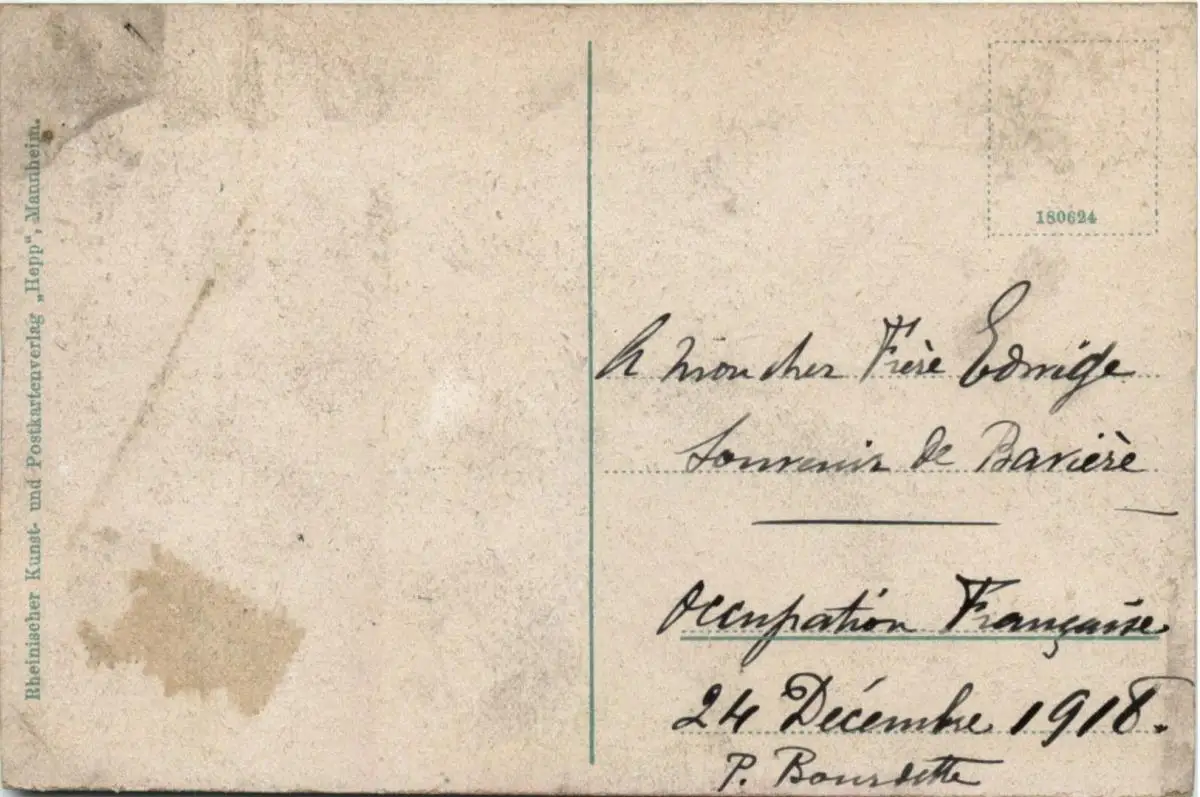 Rheinischer Kunst- und Postkartenverlag „Hepp“, Mannheim.
180624
A mon cher Frère Edmige
Souvenir de Bavière
Occupation Française
24 Décembre 1918.
P. Bourdette